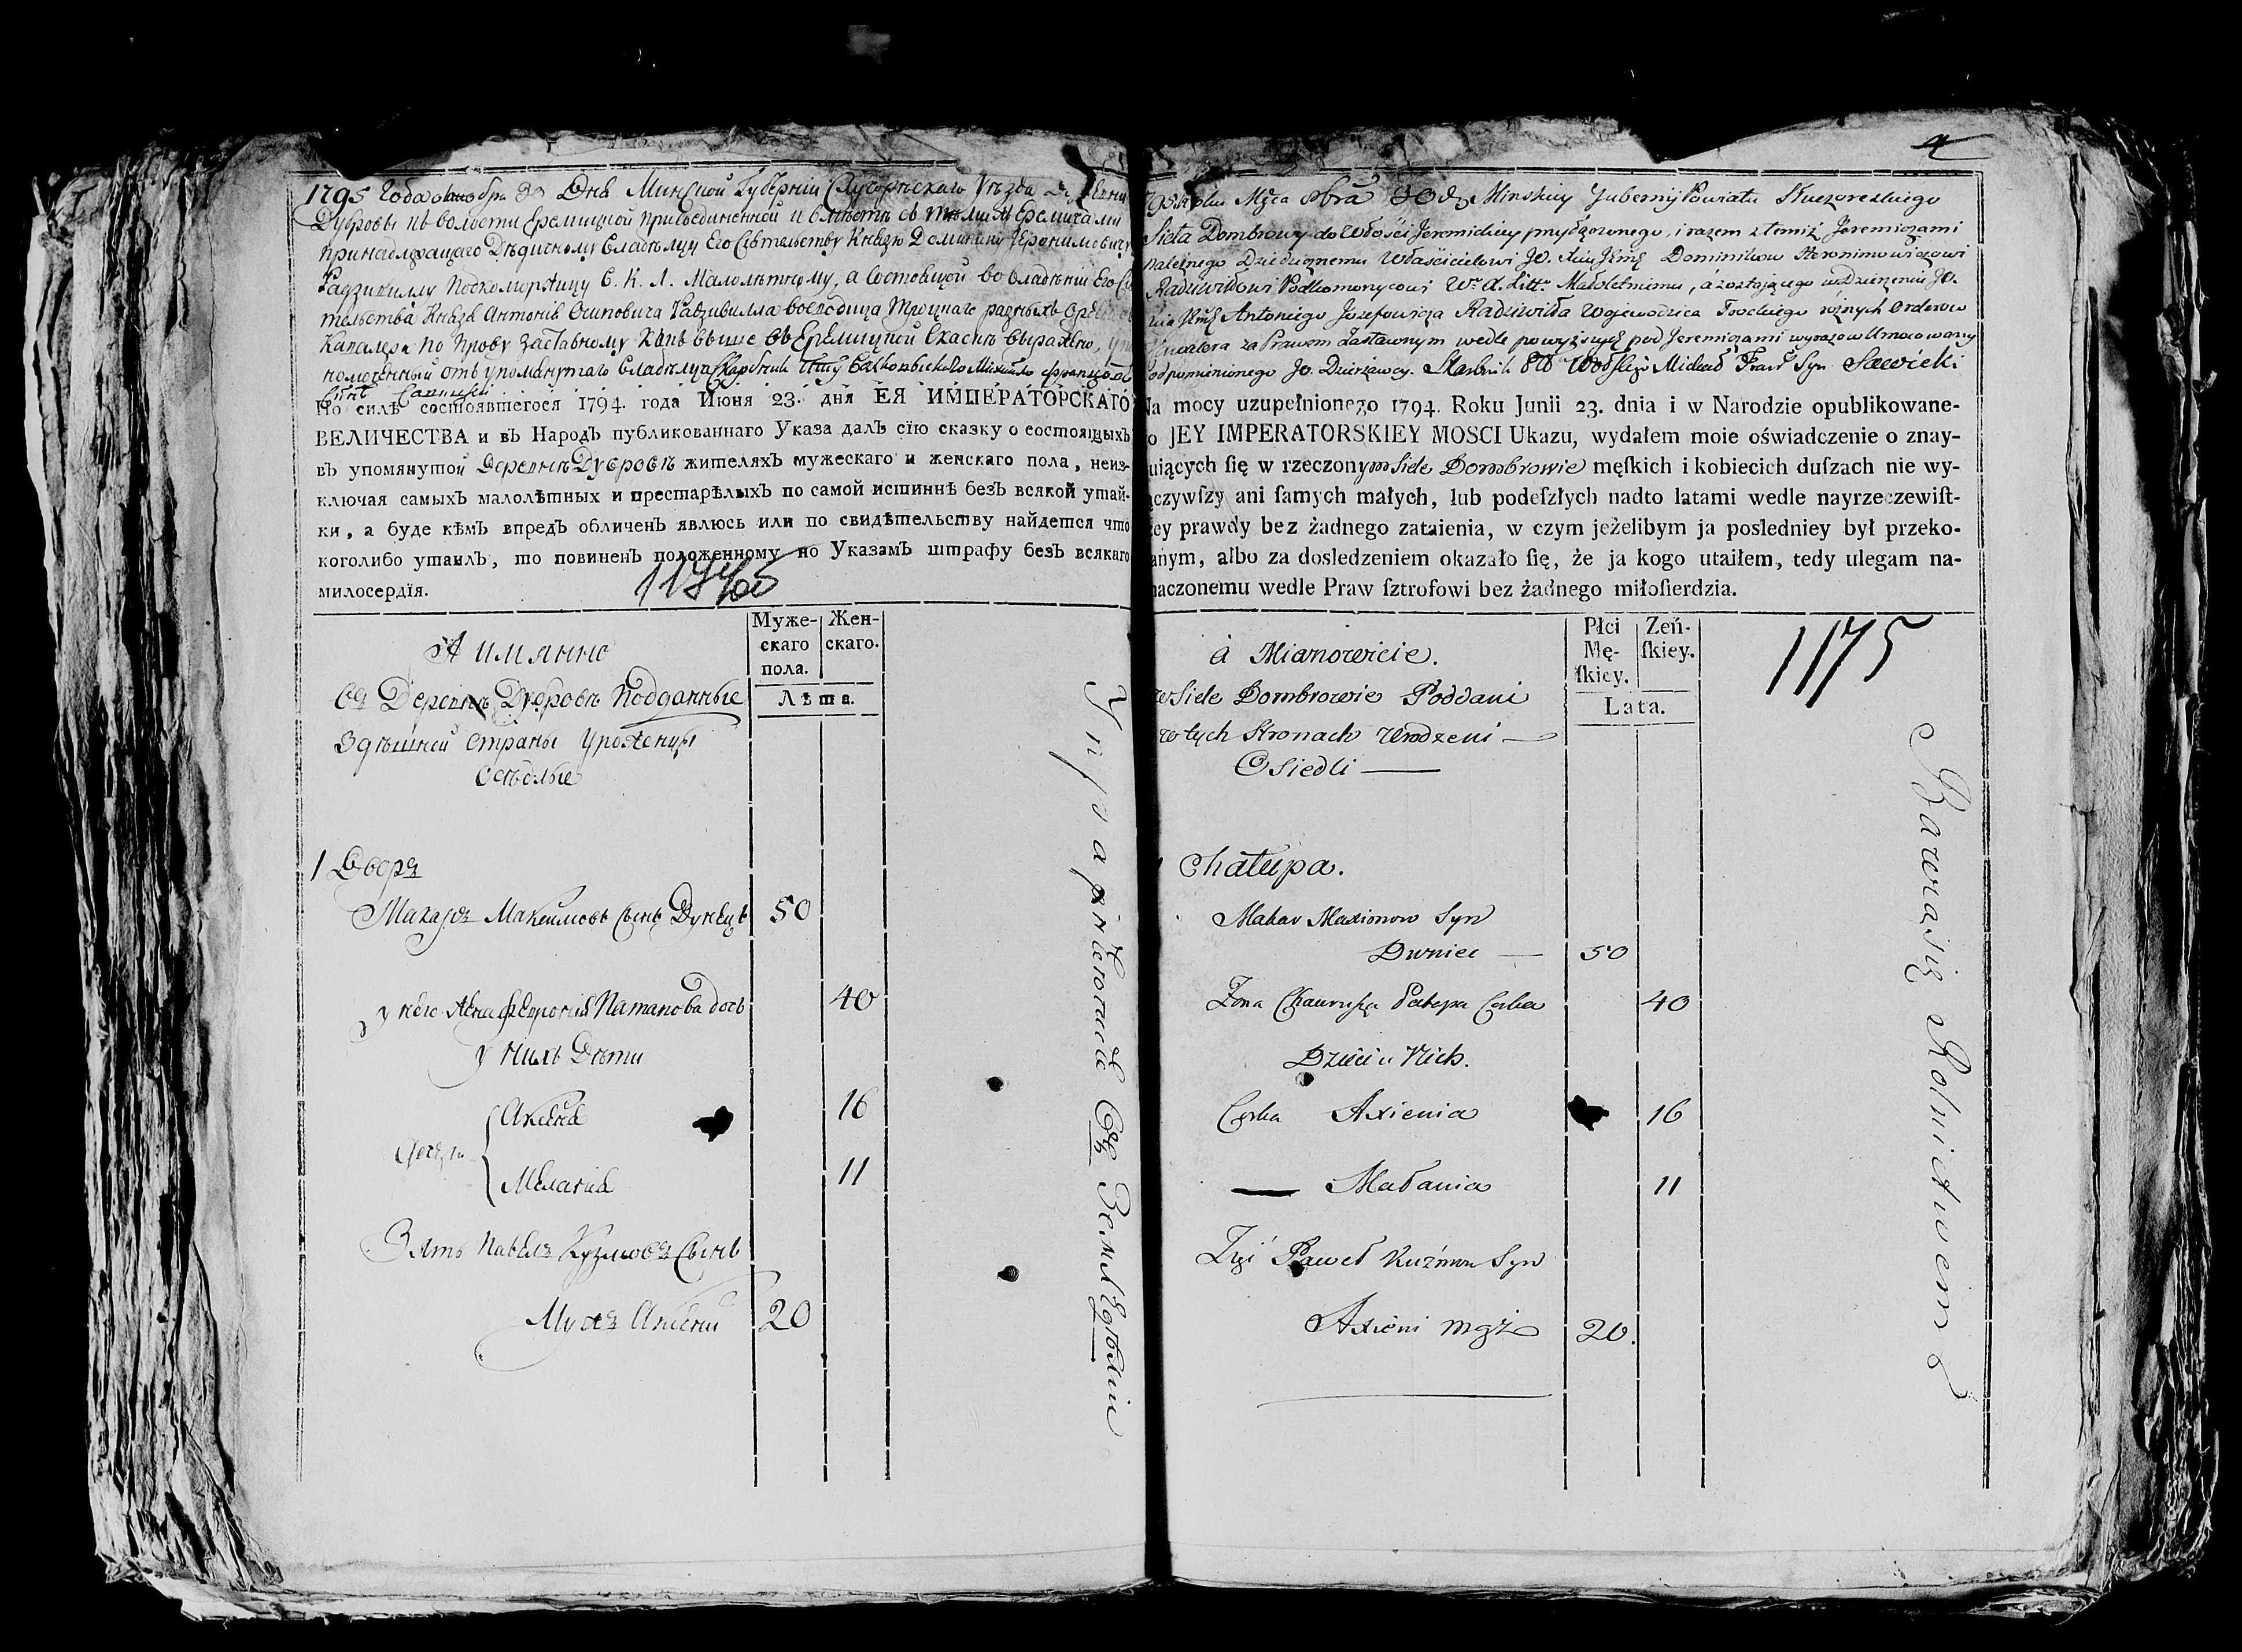 1795 Года октобра 30 Дня Минской Губерніи Случорѣскаго Уѣзда Деревни
Дубровы къ волости Еремицкой присоединенной и вмѣстѣ съ тѣми Еремичами
принадлежащаго Дѣдичному Владѣлцу Его Свѣтельству Князю Доминику Іеронимовичу
Радзивиллу Подкоморжицу В. К. Л. Малолѣтному, а Состоящой во владѣніи Его Св
тельства Князя Антонія Осиповича Радзивилла воеводица Троцкаго разныхъ орденовъ
Кавалера по праву заставному какъ выше въ Еремицкой Сказкѣ выражено, упо
номоченный отъ упомянутаго Владѣлца Скарбникъ Михайло Францовъ
Сынъ Савицкій
По силѣ состоявшегося 1794. года Июня 23. дня ЕЯ ИМПЕРАТОРСКАГО
ВЕЛИЧЕСТВА и въ Народъ публикованнаго Указа далъ сїю сказку о состоящыхъ
въ упомянутой Деревнѣ Дубровѣ жителяхъ мужескаго и женскаго пола, неиз-
ключая самыхъ малолѣтныхъ и престарѣлыхъ по самой истиннѣ безъ всякой утай-
ки, а буде кѣмъ впредъ обличенъ явлюсь или по свидѣтельству найдется что
коголибо утаилъ, то повиненъ положенному по Указамъ штрафу безъ всякаго
милосердїя.
А имянно
Муже-
скаго
пола.
Жен-
скаго.
Лѣта.
Въ Деревнѣ Дубровѣ Подданные
Здѣшней страны уроженцы
Осѣдлые
1 Дворъ
Макаръ Максимовъ Сынъ Дунецъ 50
у него Жена Февронія Патапова дочь 40
у нихъ Дѣти
Дочери
Аксенія 16
Меланія 11
Зять Павелъ Кузмовъ Сынъ
Мужъ Аксеніи 20
Упражненіе Въ Земледѣліи
4
Roku Mſca 8bra 30 d. Minskiey Gubernij Powiatu Słuczoreskiego
Sieła Dombrowy do Włości Jeremickiey przyłączonego, i razem z temiż Jeremiczami
należnego Dziedzicznemu Właścicielowi Jo. Xiu Jmę Dominikowi Heronimowiczowi
Radziwiłłowi Podkomorzycowi W. X. Litt. Małoletniemu, á zostającego w Dzierżeniu Jo.
Xia Jmę Antoniego Józefowicza Radziwiłła Wojewodzica Trockiego różnych Orderow
Kawalera za Prawem Zastawnym wedle powyższych pod Jeremiczami wyrazow Umocowany
od pomienionego Jo. Dzierżawcy. Skarbnik Michał Franc Syn Sawicki
Na mocy uzupełnionego 1794. Roku Junii 23. dnia i w Narodzie opublikowane-
o JEY IMPERATORSKIEY MOSCI Ukazu, wydałem moie oświadczenie o znay-
uiących ſię w rzeczonym Siele Dombrowie męſkich i kobiecich duſzach nie wy-
ączywſzy ani ſamych małych, lub podeſzłych nadto latami wedle nayrzeczewiſt-
zey prawdy bez żadnego zataienia, w czym jeżelibym ja posledniey był przeko-
anym, albo za dosledzeniem okazało ſię, że ja kogo utaiłem, tedy ulegam na-
naczonemu wedle Praw ſztrofowi bez żadnego miłoſierdzia.
à Mianowicie.
Płci
Mę-
ſkiey.
Zeń-
ſkiey.
Lata.
1175
w Siele Dombrowie Poddani
w tych Stronach Urodzeni
Osiedli
Chałupa.
Makar Maximow Syn
Dwniec 50
Żona Chaurusia Patapa Corka 40
Dzieci u Nich.
Corka Axienia 16
Małania 11
Zięć Paweł Kuźmow Syn
Axieni mąż 20.
Bawią się Rolnictwem